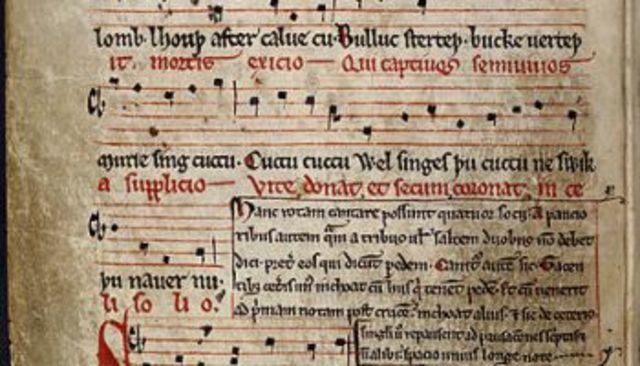 lomb· lhouþ after calue cu· Bulluc sterteþ· bucke uerteþ
it mortis exicio — Qui captiuos semiuiuos
murie sing cuccu· Cuccu cuccu Wel singes þu cuccu ne swik
a supplicio — Vite donat et secum coronat in ce
þu nauer nu·
li so li o.
Hanc rotam cantare possunt quatuor socij. A paucio
ribus autem q̃m a tribus ul̃ saltem duobus nõ debet
dici. pret̃ eos qui dicũt pedem. Canit̃ aut̃ sic. Tacen
tibꝫ cet̃is unꝰ inchoat cum hijs q̃ tenẽt pedẽ. Et cũ uenerit
ad p̃mam notam post crucẽ. inchoat alius. ⁊ sic de ceteris
singli ũ repausent ad pausacões
alibi. spacio unius longe note